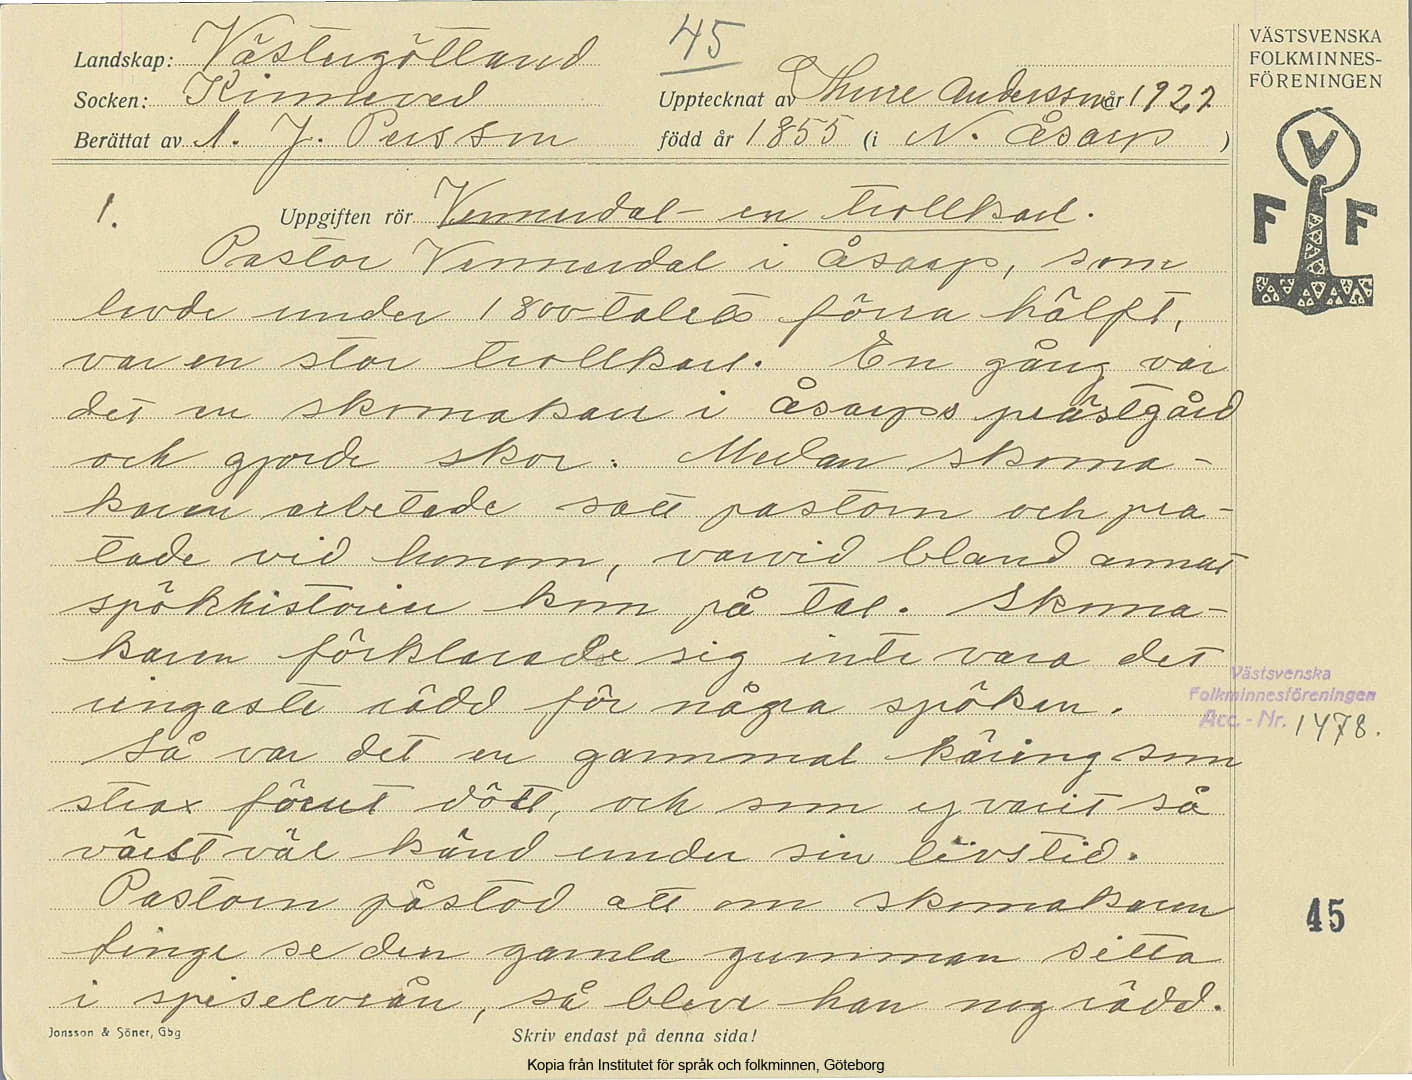 45
Landskap: Västergötland
Socken: Kinneved
Upptecknat av Thure Andersson år 1927
Berättat av A. J. Persson
född år 1855 (i N. Åsarp )
VÄSTSVENSKA
FOLKMINNES-
FÖRENINGEN
V
F F
1.
Uppgiften rör Vennerdal – en trollkarl.
Pastor Vennerdal i Åsarp, som
levde under 1800-talets förra hälft,
var en stor trollkarl. En gång var
det en skomakare i Åsarps prästgård
och gjorde skor. Medan skoma-
karen arbetade satt pastorn och pra-
tade vid honom, varvid bland annat
spökhistorier kom på tal. Skoma-
karen förklarade sig inte vara det
ringaste rädd för några spöken.
Så var det en gammal käring som
strax förut dött, och som ej varit så
värst väl känd under sin livstid.
Pastorn påstod att om skomakaren
finge se den gamla gumman sitta
i spiselvrån, så bleve han nog rädd.
Västsvenska
Folkminnesföreningen
Acc.-Nr. 1478.
45
Jonsson & Söner, Gbg
Skriv endast på denna sida!
Kopia från Institutet för språk och folkminnen, Göteborg